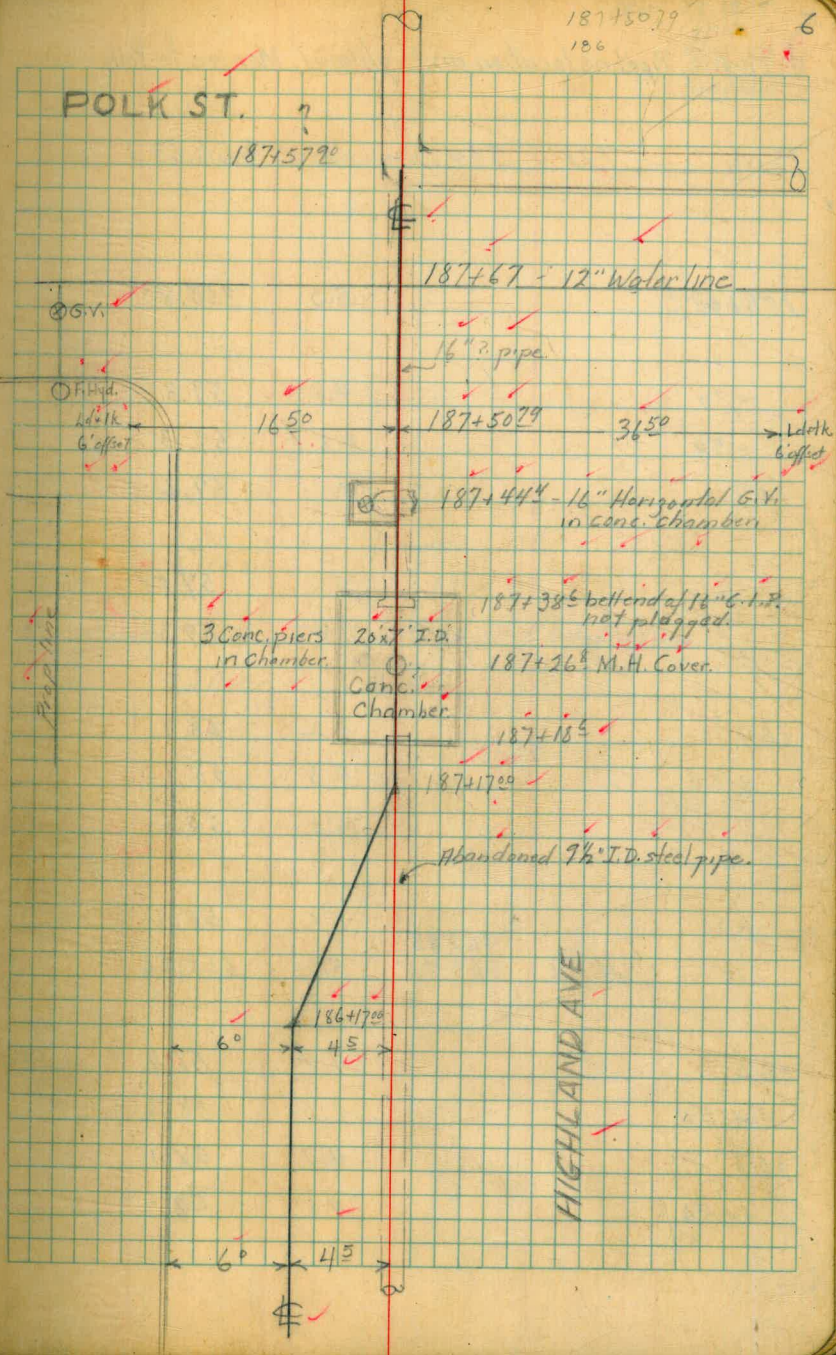 187+50 79
6
186
POLK ST.
?
187+57 90
℄
187+67 - 12" Water line
G.V.
16"? pipe
F. Hyd.
Ld+tk
6' offset
16 50
187+50 79
36 50
Ld+tk
6' offset
187+44 4 - 16" Horizontal G.V.
in conc. chamber
187+38 6 bell end of 16" C.I.P.
not plugged.
3 Conc. piers
in chamber.
20'x7' I.D.
187+26 8 M.H. Cover.
Conc.
Chamber.
Prop line
187+18 6
187+17 00
Abandoned 9½" I.D. steel pipe.
186+17 00
6 0
4 5
HIGHLAND AVE
6 0
4 5
℄